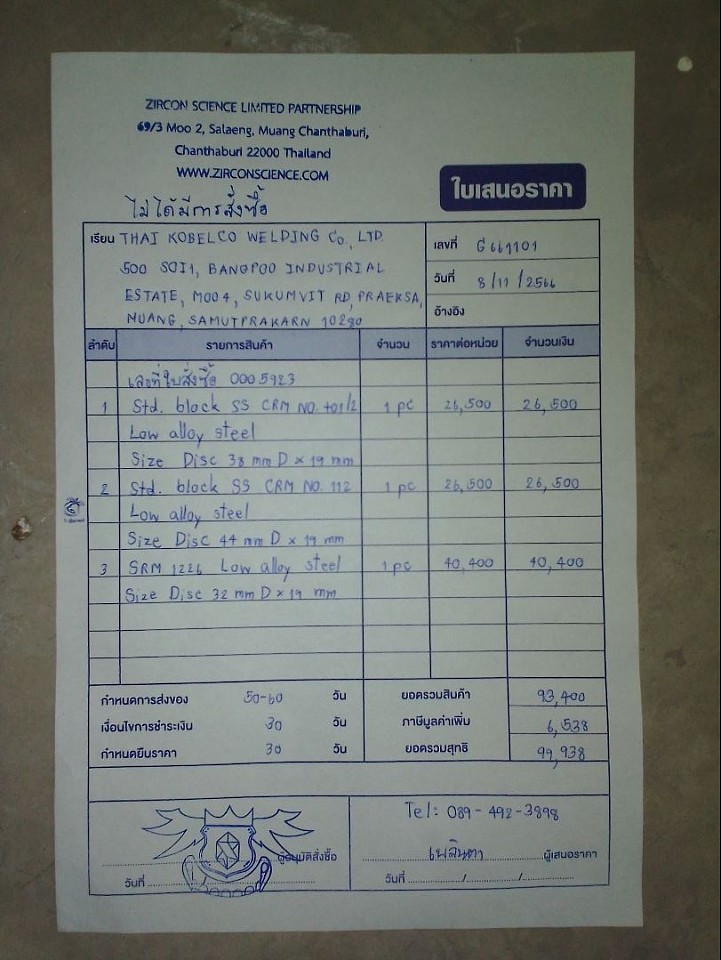 ZIRCON SCIENCE LIMITED PARTNERSHIP
69/3 Moo 2, Salaeng, Muang Chanthaburi,
Chanthaburi 22000 Thailand
WWW.ZIRCONSCIENCE.COM
ใบเสนอราคา
ไม่ได้มีการสั่งซื้อ
เรียน THAI KOBELCO WELDING CO., LTD.
500 SOI1, BANGPOO INDUSTRIAL
ESTATE, MOO4, SUKUMVIT RD, PRAEKSA,
MUANG, SAMUTPRAKARN 10280
เลขที่ G661101
วันที่ 8/11/2566
อ้างอิง
ลำดับ รายการสินค้า จำนวน ราคาต่อหน่วย จำนวนเงิน
เลขที่ใบสั่งซื้อ 0005923
1 Std. block SS CRM NO. 401/2 1 pc 26,500 26,500
Low alloy steel
Size Disc 38 mm D x 19 mm
2 Std. block SS CRM NO. 112 1 pc 26,500 26,500
Low alloy steel
Size Disc 44 mm D x 19 mm
3 SRM 1226 Low alloy steel 1 pc 40,400 40,400
Size Disc 32 mm D x 19 mm
กำหนดการส่งของ 50-60 วัน ยอดรวมสินค้า 93,400
เงื่อนไขการชำระเงิน 30 วัน ภาษีมูลค่าเพิ่ม 6,538
กำหนดยืนราคา 30 วัน ยอดรวมสุทธิ 99,938
Tel: 089-492-3898
ผู้อนุมัติสั่งซื้อ
เพลินตา ผู้เสนอราคา
วันที่
วันที่ / /